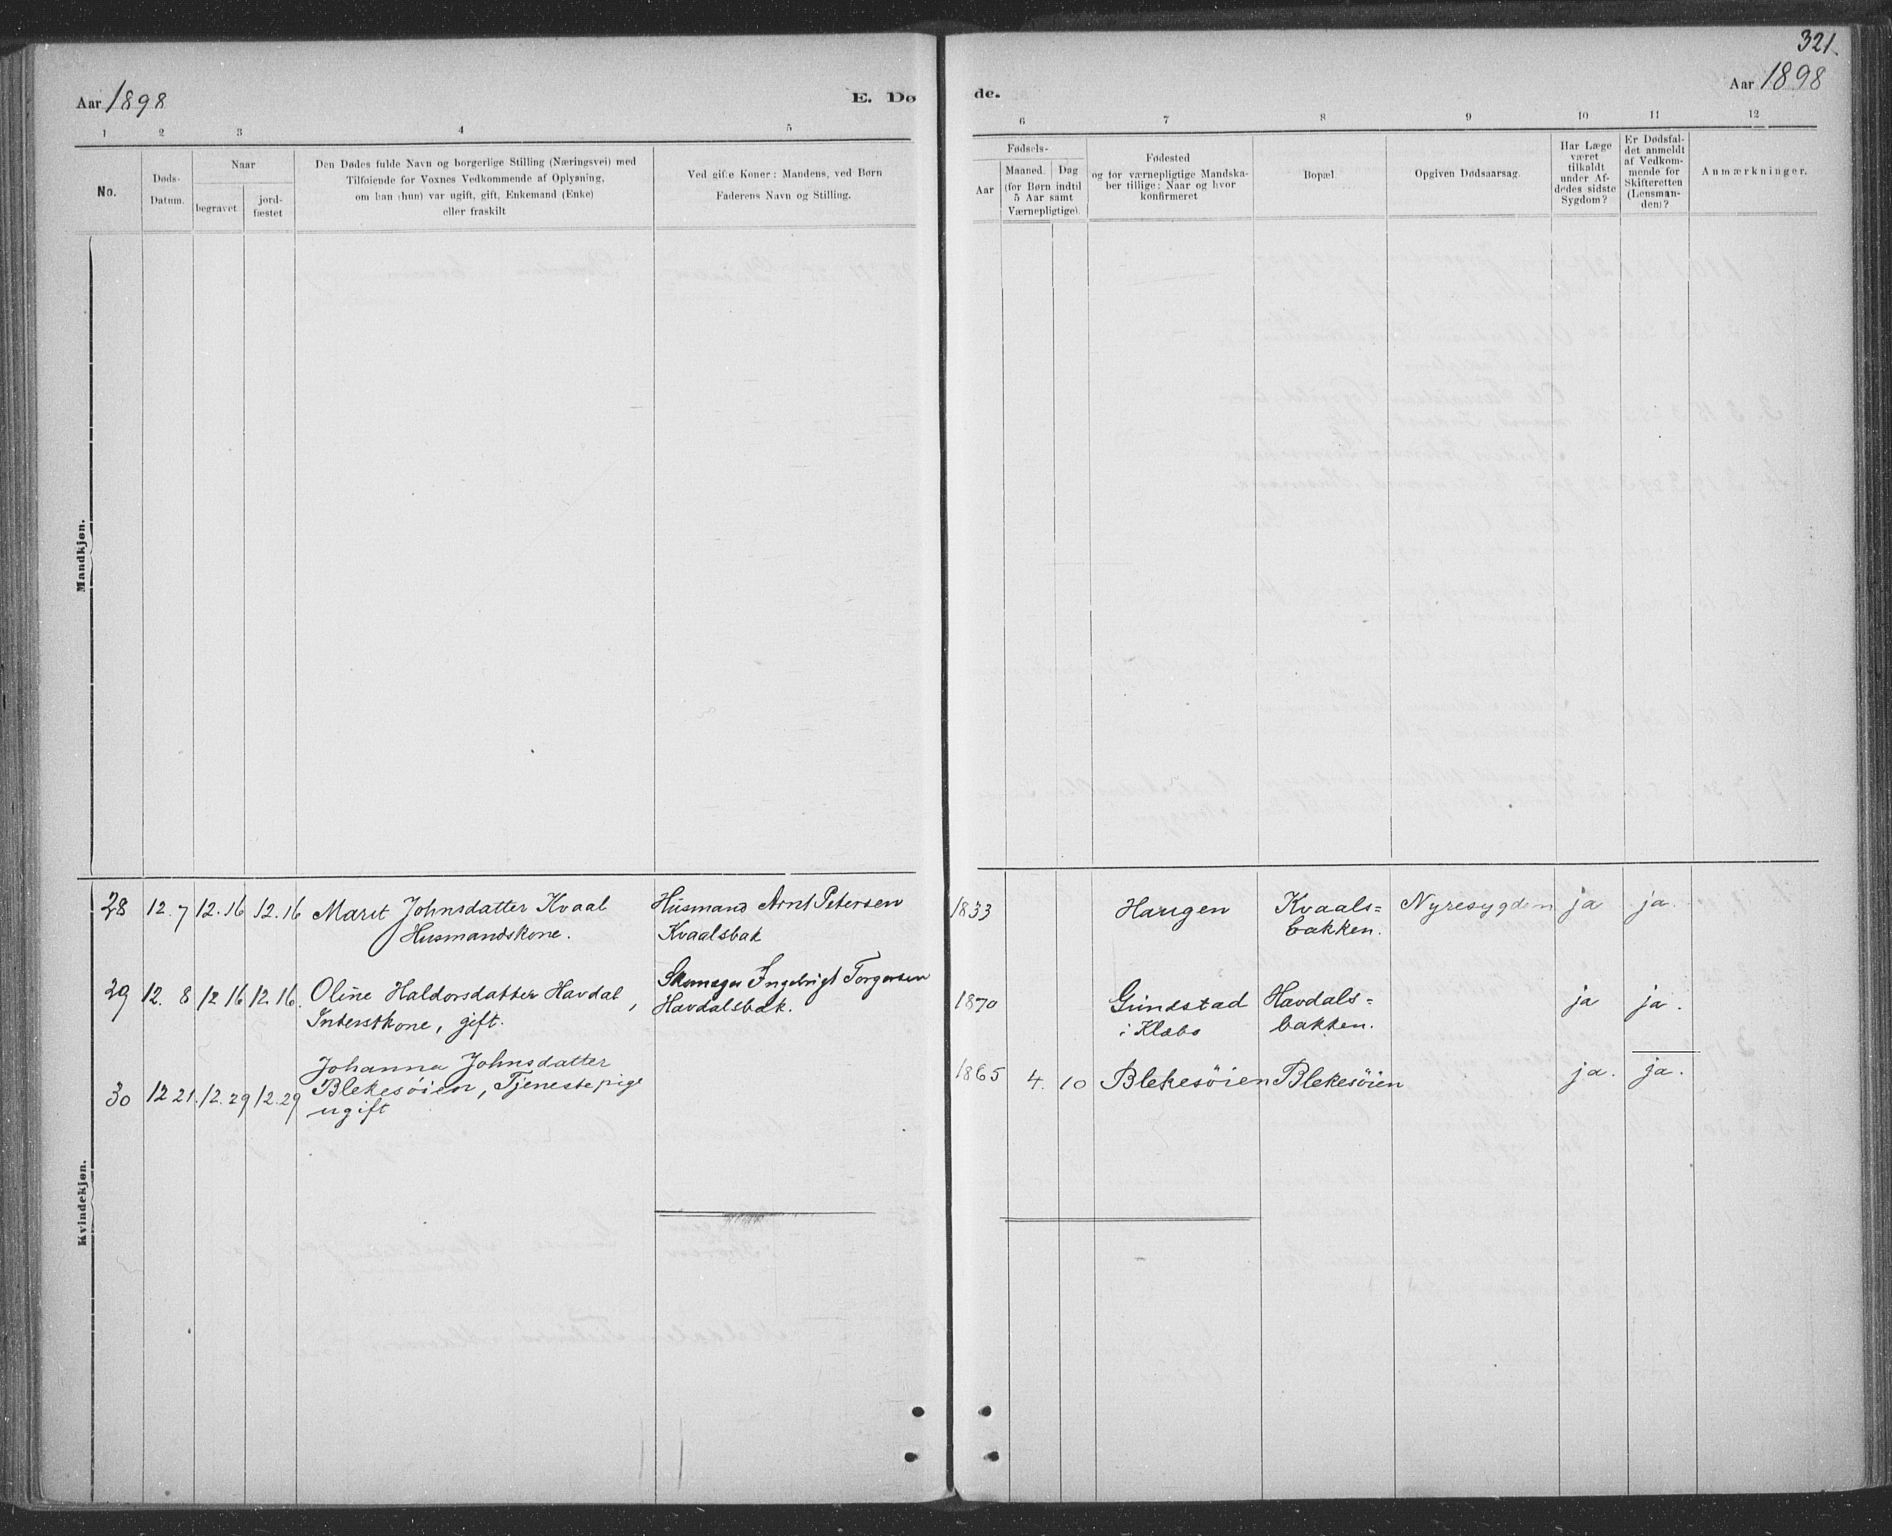 321.
Aar 1898
E. Dø
de.
Aar 1898
1 2 3 4 5
6 7 8 9 10 11 12
No.
Døds-
Datum.
Naar
begravet
jord-
fæstet
Den Dødes fulde Navn og borgerlige Stilling (Næringsvei) med
Tilføiende for Voxnes Vedkommende af Oplysning,
om han (hun) var ugift, gift, Enkemand (Enke)
eller fraskilt
Ved gifte Koner: Mandens, ved Børn
Faderens Navn og Stilling.
Fødsels-
Aar
Maaned. Dag
(for Børn indtil
5 Aar samt
Værnepligtige).
Fødested
og for værnepligtige Mandska-
ber tillige: Naar og hvor
konfirmeret
Bopæl.
Opgiven Dødsaarsag.
Har Læge
været
tilkaldt
under Af-
dødes sidste
Sygdom?
Er Dødsfal-
det anmeldt
af Vedkom-
mende for
Skifteretten
(Lensman-
den)?
Anmærkninger.
Mandkjøn.
Kvindekjøn.
28 12.7 12.16 12.16 Marit Johnsdatter Kvaal Husmand Arnt Petersen 1833 Kvaals= Nyresygdom ja ja.
Husmandskone. Kvaalsbak bakken.
29 12.8 12.16 12.16. Oline Haldorsdatter Havdal, Skomager Ingebrigt Torgersen 1870 Grindstad Havdals= ja ja.
Inderstkone, gift. Havdalsbak. i Klæbo bakken.
Johanna Johnsdatter
30 12.21. 12.29 12.29 Blekesøien, Tjenestepige 1865 4. 10 Blekesøien Blekesøien ja. ja.
ugift